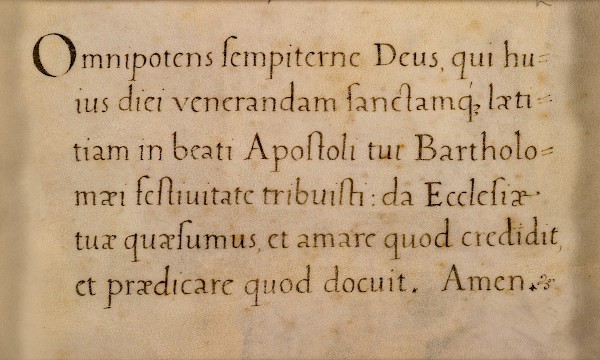 Omnipotens ſempiterne Deus, qui hu=
ius diei venerandam ſanctamq́; læti=
tiam in beati Apoſtoli tui Bartholo=
mæi feſtiuitate tribuiſti: da Eccleſiæ
tuæ quæſumus, et amare quod credidit,
et prædicare quod docuit. Amen.